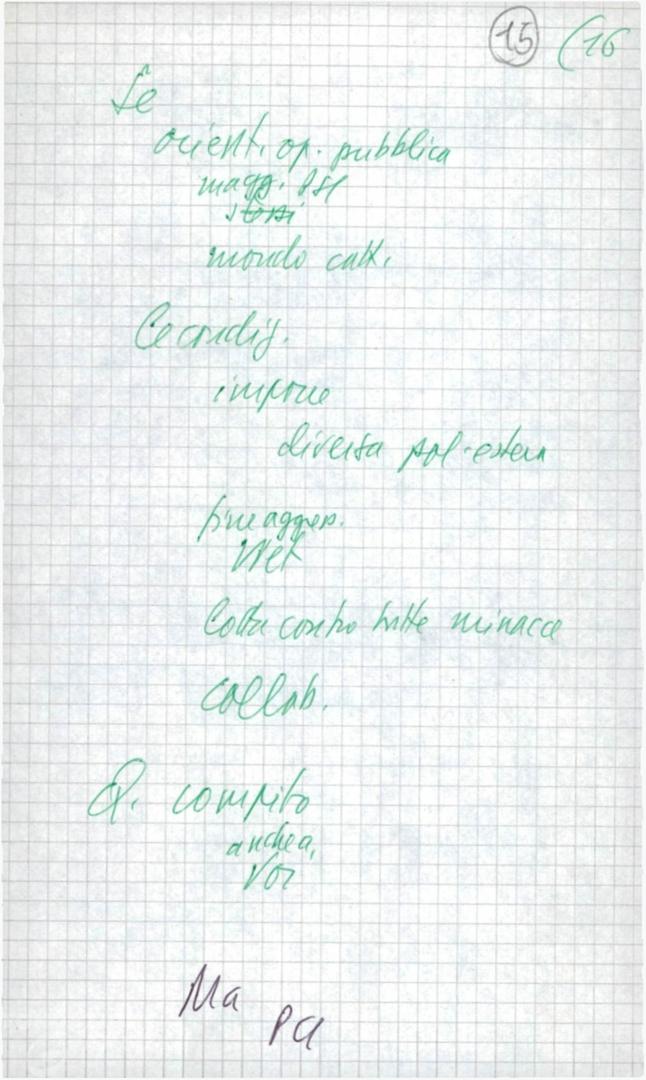 15 (16
Se
orient. op. pubblica
magg. PSI
stessi
mondo catt.
Le condiz.
impone
diversa pol. estera
fine aggress.
Viet
Lotta contro tutte minacce
collab.
Q. compito
anche a
Voi
Ma
PCI